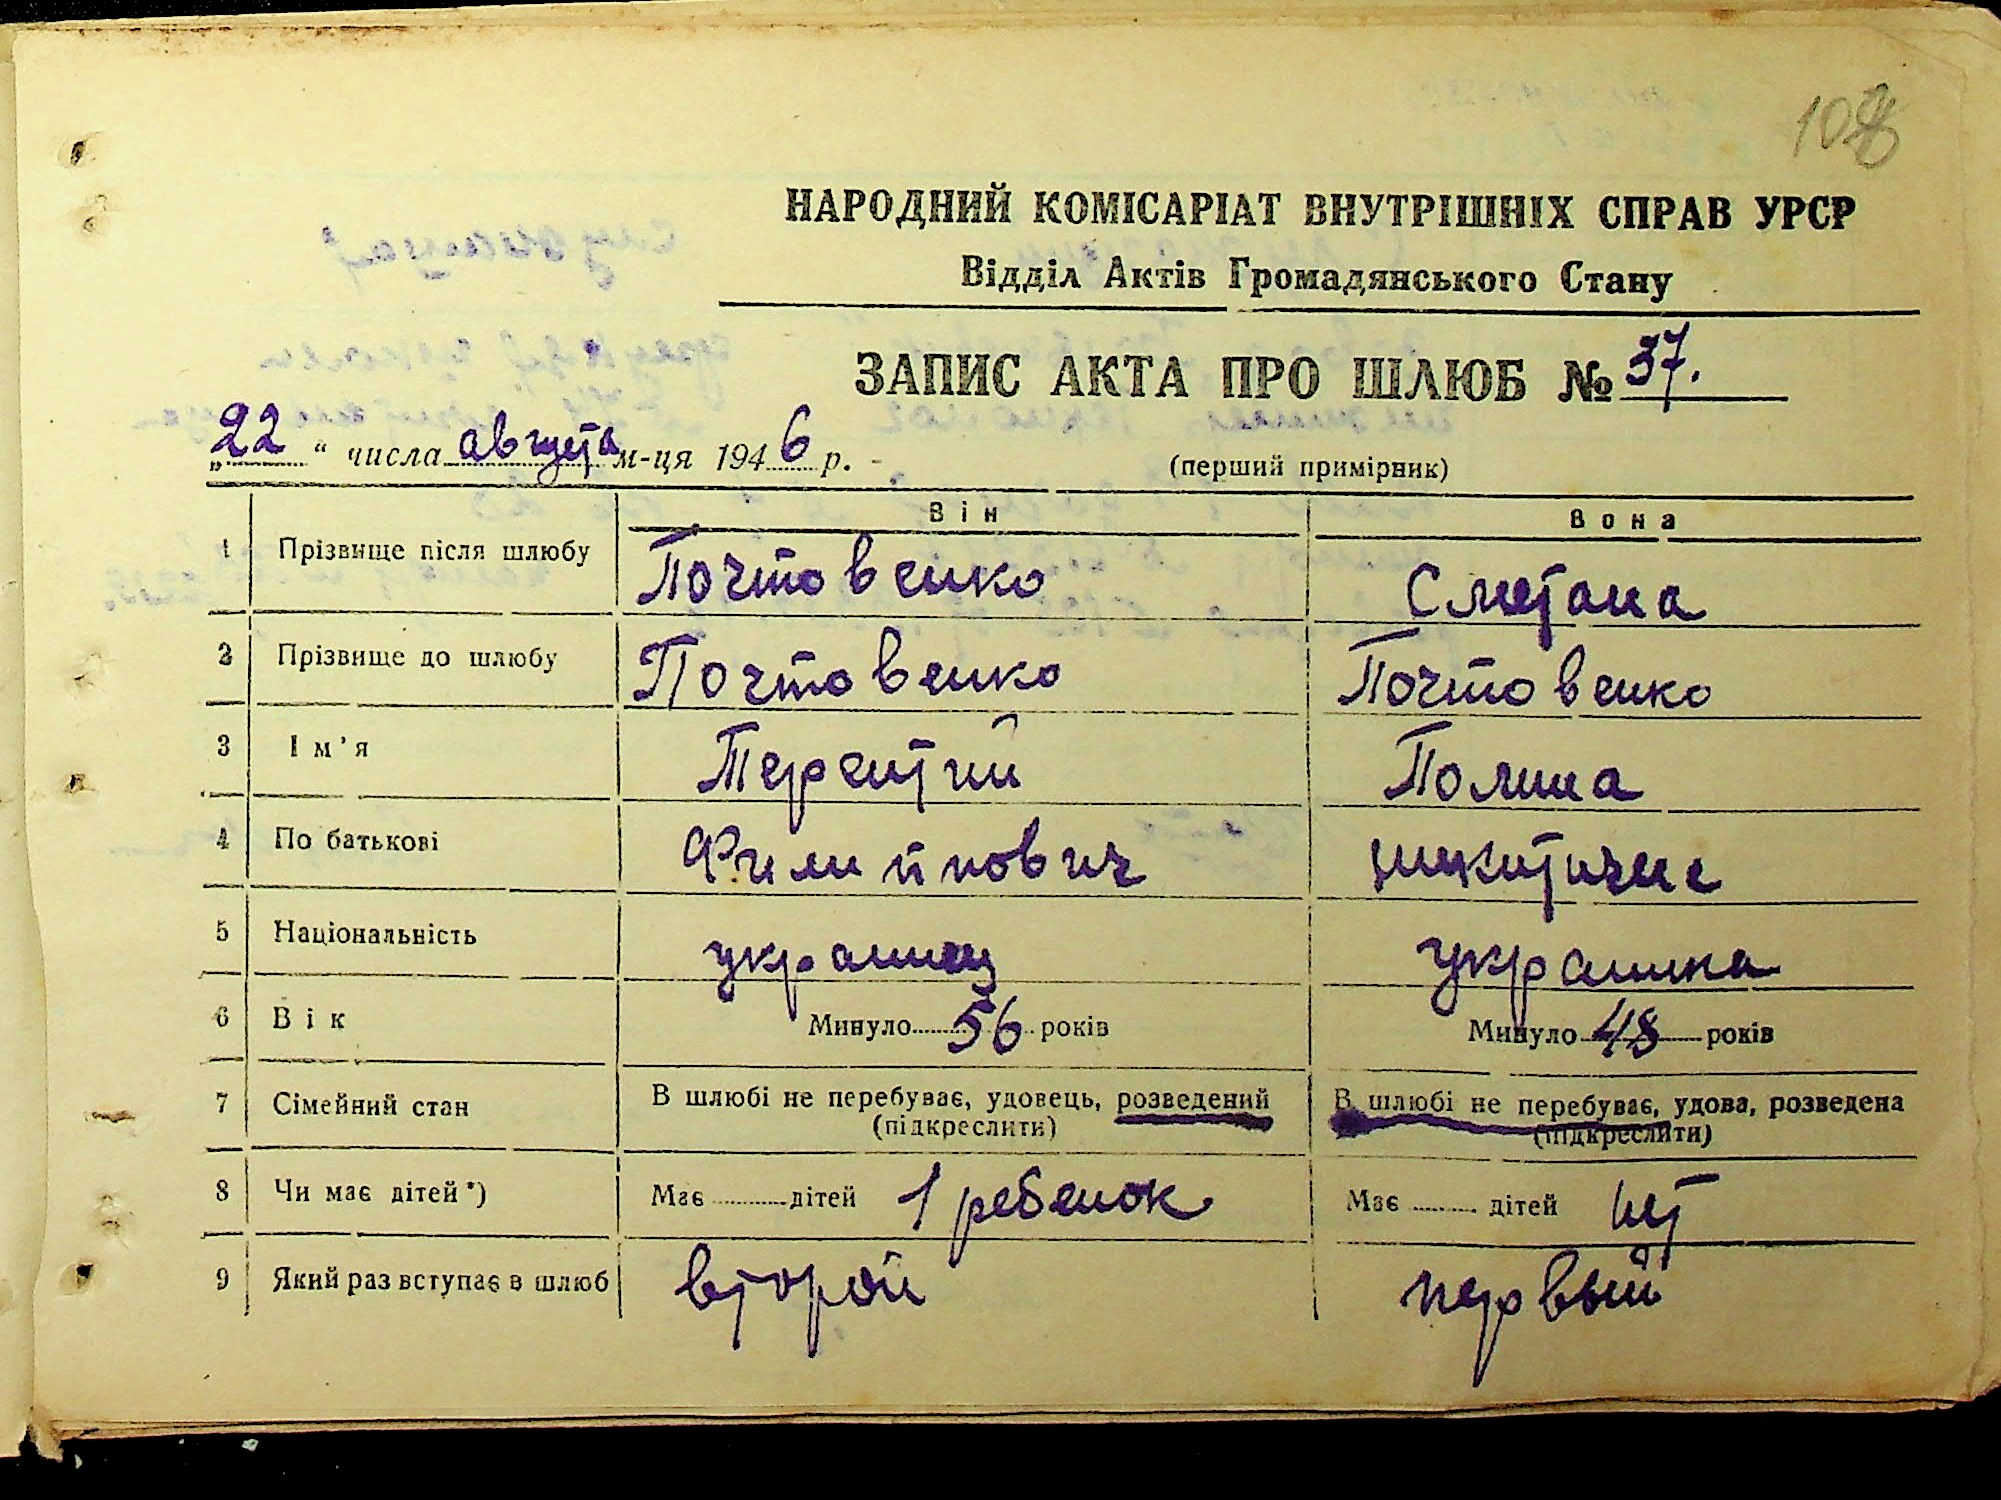 108
НАРОДНИЙ КОМІСАРІАТ ВНУТРІШНІХ СПРАВ УРСР
Відділ Актів Громадянського Стану
ЗАПИС АКТА ПРО ШЛЮБ № 37.
„22“ числа августа м-ця 1946 р.
(перший примірник)
Він Вона
1 Прізвище після шлюбу Почтовенко Сметана
2 Прізвище до шлюбу Почтовенко Почтовенко
3 Ім'я Терентий Полина
4 По батькові Филиппович Никитична
5 Національність украинец украинка
6 Вік Минуло 56 років Минуло 48 років
7 Сімейний стан В шлюбі не перебуває, удовець, розведений (підкреслити) В шлюбі не перебуває, удова, розведена (підкреслити)
8 Чи має дітей*) Має ......... дітей 1 ребенок Має ......... дітей нет
9 Який раз вступає в шлюб второй первый